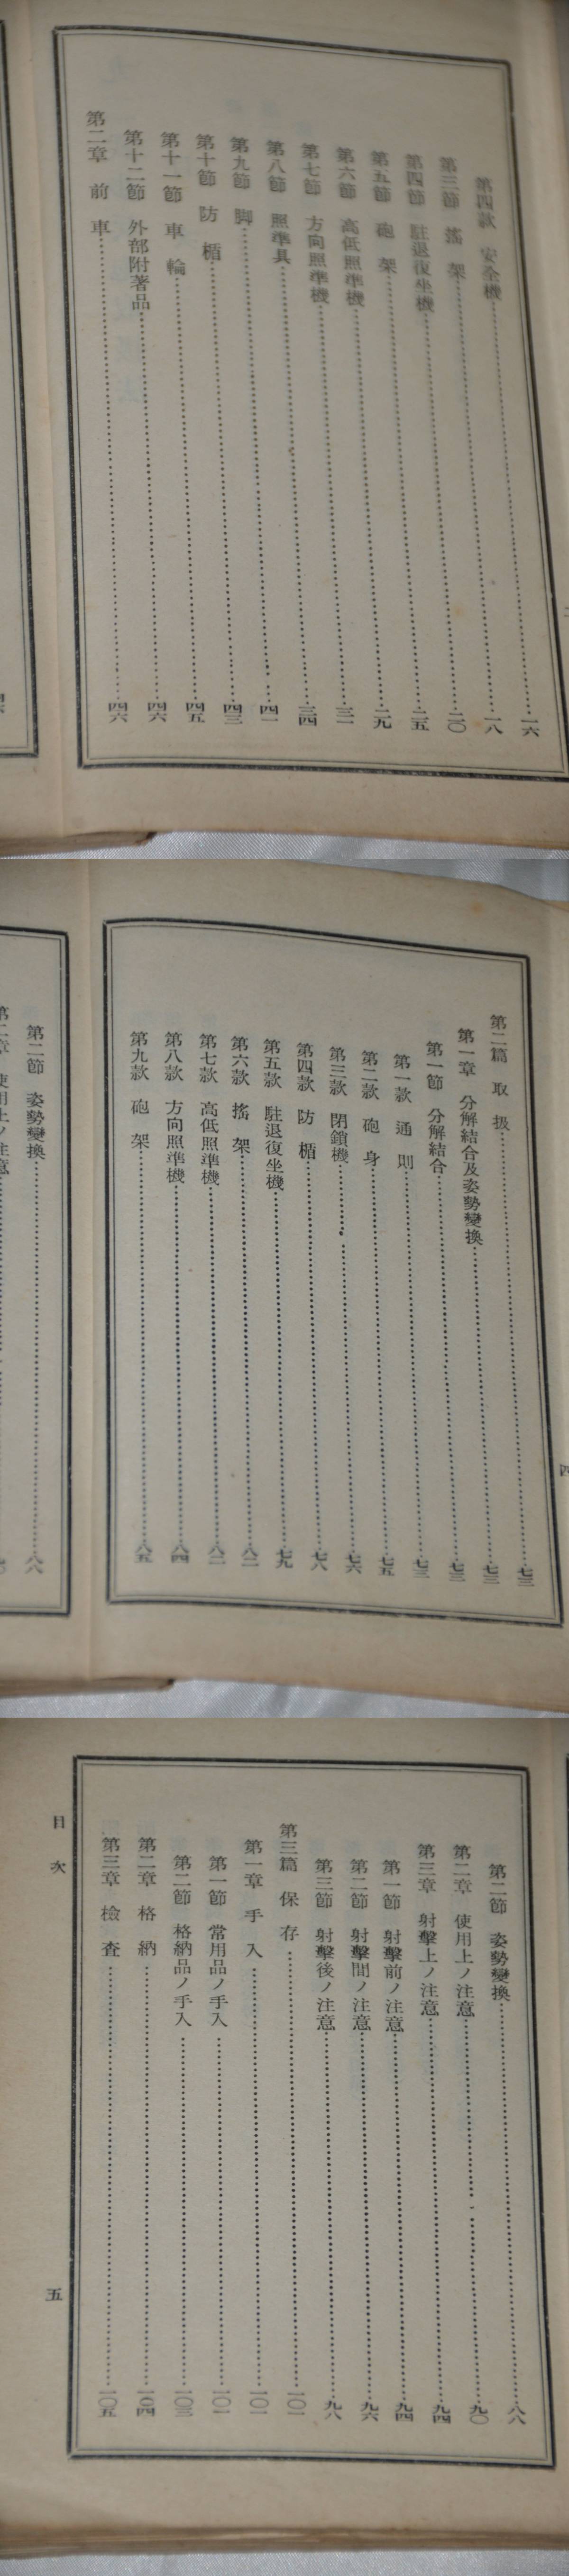 第四款　安全機…一六
第三節　搖架…一八
第四節　駐退復坐機…二〇
第五節　砲架…二五
第六節　高低照準機…二九
第七節　方向照準機…三一
第八節　照準具…三四
第九節　脚…四一
第十節　防楯…四三
第十一節　車輪…四五
第十二節　外部附著品…四六
第二章　前車…四六
四
第二篇　取扱…七三
第一章　分解結合及姿勢變換…七三
第一節　分解結合…七三
第一款　通則…七三
第二款　砲身…七五
第三款　閉鎖機…七六
第四款　防楯…七八
第五款　駐退復坐機…七九
第六款　搖架…八二
第七款　高低照準機…八二
第八款　方向照準機…八四
第九款　砲架…八五
第二節　姿勢變換…八八
第二章　使用上ノ注意
第二節　姿勢變換…八八
第二章　使用上ノ注意…九〇
第三章　射擊上ノ注意…九四
第一節　射擊前ノ注意…九四
第二節　射擊間ノ注意…九六
第三節　射擊後ノ注意…九八
第三篇　保存…一〇一
第一章　手入…一〇一
第一節　常用品ノ手入…一〇一
第二節　格納品ノ手入…一〇三
第二章　格納…一〇四
第三章　檢查…一〇五
目次
五